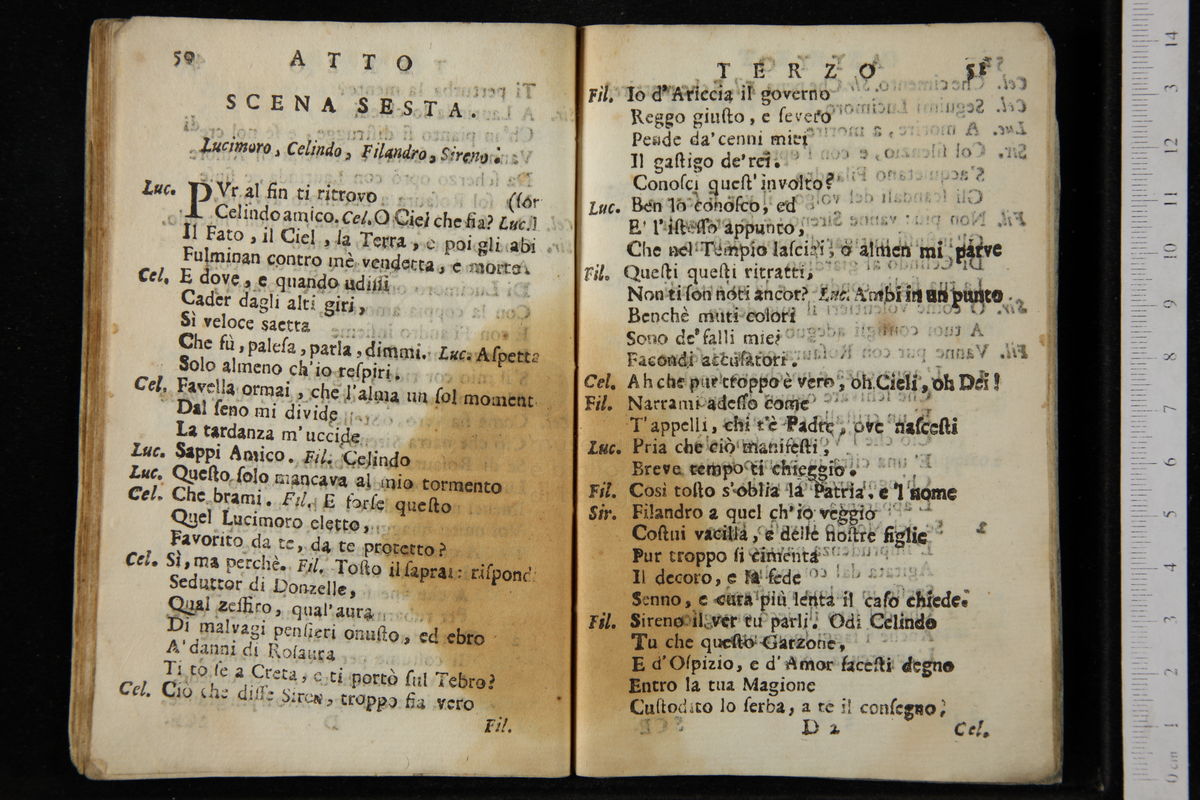 50 ATTO
SCENA SESTA.
Lucimoro, Celindo, Filandro, Sireno.
Luc. PUr al fin ti ritrovo (sor
Celindo amico. Cel. O Ciel che fia? Luc. l
Il Fato, il Ciel, la Terra, e poi gli abi
Fulminan contro mè vendetta, e morte.
Cel. E dove, e quando udiſſi
Cader dagli alti giri,
Sì veloce saetta
Che fù, paleſa, parla, dimmi. Luc. Aſpetta
Solo almeno ch'io reſpiri.
Cel. Favella ormai, che l'alma un ſol moment
Dal ſeno mi divide
La tardanza m'uccide
Luc. Sappi Amico. Fil. Celindo
Luc. Queſto ſolo mancava al mio tormento
Cel. Che brami. Fil. E forſe queſto
Quel Lucimoro eletto,
Favorito da te, da te protetto?
Cel. Sì, ma perchè. Fil. Toſto il ſaprai: riſpond
Seduttor di Donzelle,
Qual zeffiro, qual'aura
Di malvagi penſieri onuſto, ed ebro
A' danni di Roſaura
Ti tò ſe a Creta, e ti portò ſul Tebro?
Cel. Ciò che diſſe Siren, troppo fia vero
Fil.
TERZO 51
Fil. Io d'Ariccia il governo
Reggo giuſto, e ſevero
Pende da' cenni miei
Il gaſtigo de' rei.
Conoſci queſt' involto?
Luc. Ben lo conoſco, ed
E' l'iſteſſo appunto,
Che nel Tempio laſciai, o almen mi parve
Fil. Queſti queſti ritratti,
Non ti ſon noti ancor? Luc. Ambi in un punto
Benchè muti colori
Sono de' falli miei
Facondi accuſatori.
Cel. Ah che pur troppo è vero, oh Cieli, oh Dei!
Fil. Narrami adeſſo come
T'appelli, chi t'è Padre, ove naſceſti
Luc. Pria che ciò manifeſti,
Breve tempo ti chieggio.
Fil. Così toſto s'oblia la Patria, e 'l nome
Sir. Filandro a quel ch'io veggio
Coſtui vacilla, e delle noſtre figlie
Pur troppo ſi cimenta
Il decoro, e la fede
Senno, e cura più lenta il caſo chiede.
Fil. Sireno il ver tu parli. Odi Celindo
Tu che queſto Garzone,
E d'Oſpizio, e d'Amor faceſti degno
Entro la tua Magione
Cuſtodito lo ſerba, a te il conſegno.
D 2 Cel.